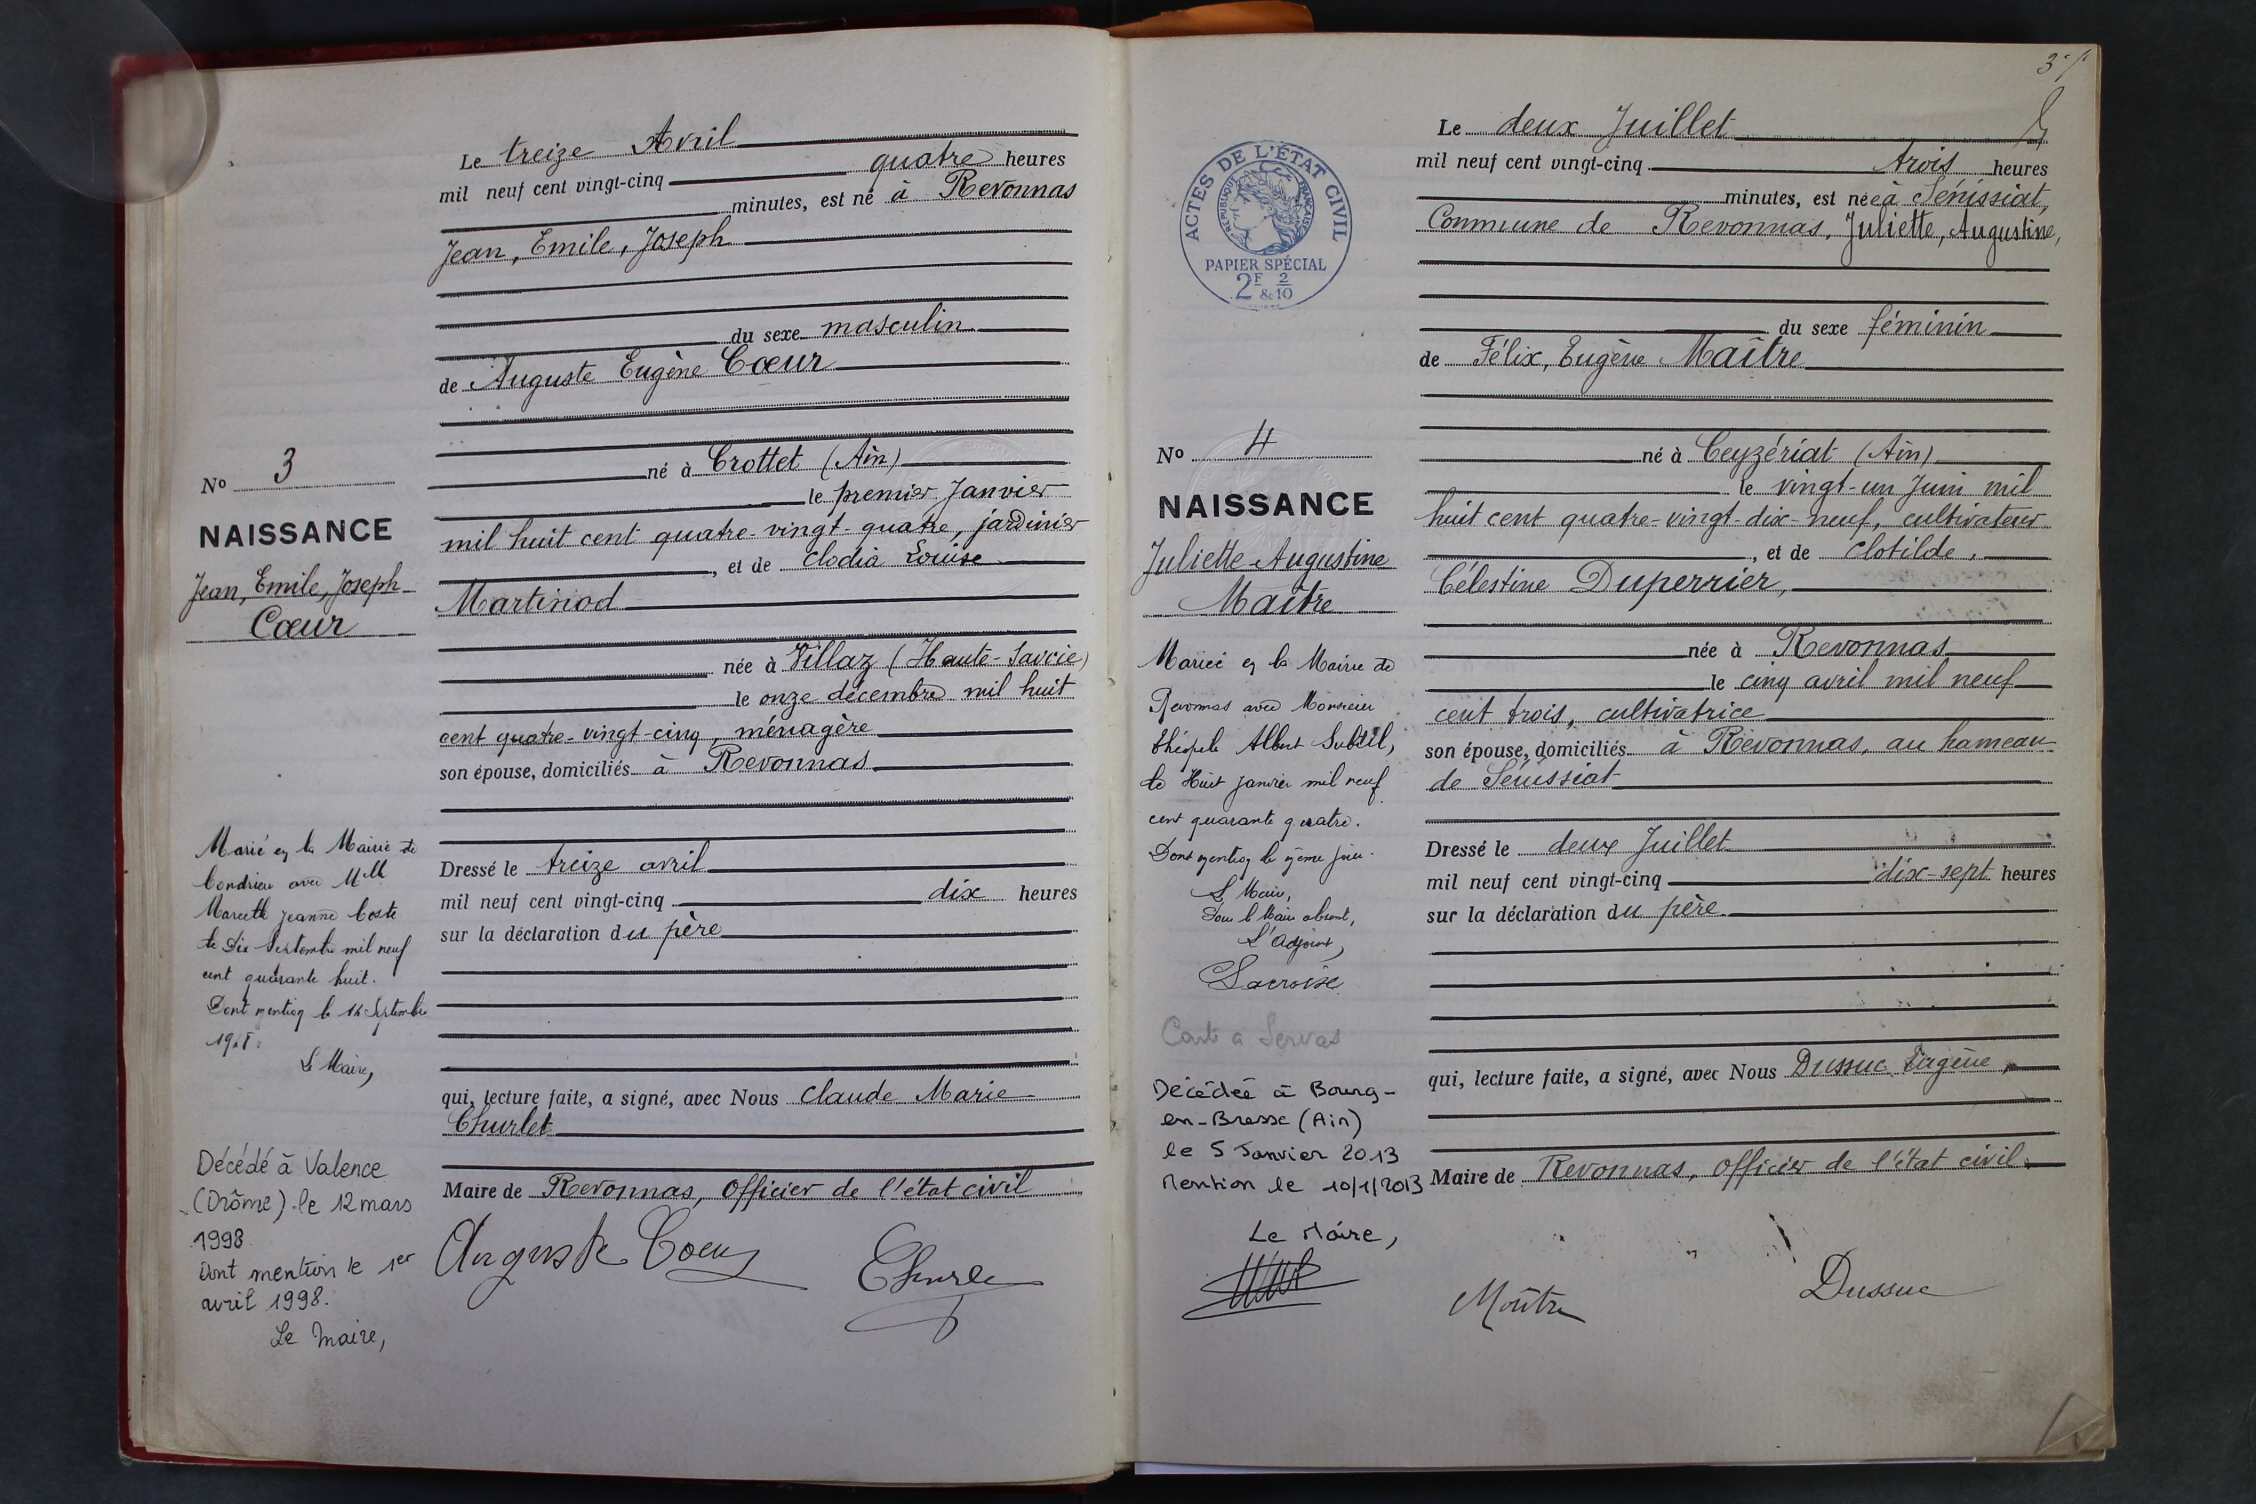 Le treize Avril
mil neuf cent vingt-cinq quatre heures
minutes, est né à Revonnas
Jean, Emile, Joseph
du sexe masculin
de Auguste Eugène Cœur
né à Crottet (Ain)
le premier Janvier
mil huit cent quatre-vingt-quatre, jardinier
, et de Clodia Louise
Martinod
née à Villaz (Haute-Savoie)
le onze décembre mil huit
cent quatre-vingt-cinq, ménagère
son épouse, domiciliés à Revonnas
Dressé le treize avril
mil neuf cent vingt-cinq dix heures
sur la déclaration du père
qui, lecture faite, a signé, avec Nous Claude Marie
Churlet
Maire de Revonnas, Officier de l'état civil
Auguste Coeur
No 3
NAISSANCE
Jean, Emile, Joseph
Cœur
Marié en la Mairie de
Condrieu avec Mlle
Marcelle Jeanne Coste
le Dix Septembre mil neuf
cent quarante huit.
Dont mention le 14 Septembre
Le Maire,
Décédé à Valence
(Drôme) le 12 mars
1998.
Dont mention le 1er
avril 1998.
Le Maire,
ACTES DE L'ÉTAT CIVIL
RÉPUBLIQUE FRANÇAISE
PAPIER SPÉCIAL
2F & 2/10
Le deux Juillet
mil neuf cent vingt-cinq trois heures
minutes, est née à Sénissiat,
Commune de Revonnas, Juliette, Augustine,
du sexe féminin
de Félix, Eugène Maître
né à Ceyzériat (Ain)
le vingt-un Juin mil
huit cent quatre-vingt-dix-neuf, cultivateur
, et de Clotilde,
Célestine Duperrier,
née à Revonnas
le cinq avril mil neuf
cent trois, cultivatrice
son épouse, domiciliés à Revonnas, au hameau
de Sénissiat
Dressé le deux Juillet
mil neuf cent vingt-cinq dix-sept heures
sur la déclaration du père
qui, lecture faite, a signé, avec Nous Dussuc Eugène,
Maire de Revonnas, Officier de l'état civil
Maître
Dussuc
No 4
NAISSANCE
Juliette Augustine
Maître
Mariée en la Mairie de
Revonnas avec Monsieur
Théophile Albert Subtil,
le Huit janvier mil neuf
cent quarante quatre.
Dont mention le même jour.
Le Maire,
Pour le Maire absent,
L'adjoint,
Lacroix
Carte a Servas
Décédée à Bourg-
en-Bresse (Ain)
le 5 Janvier 2013
Mention le 10/1/2013
Le Maire,